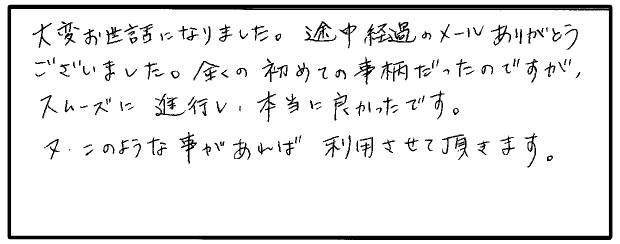 大変お世話になりました。途中経過のメールありがとう
ございました。全くの初めての事柄だったのですが、
スムーズに進行し、本当に良かったです。
又、このような事があれば利用させて頂きます。